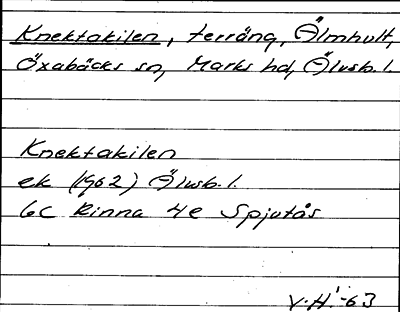 Knektakilen, terräng, Älmhult,
Öxabäcks sn, Marks hd, Älvsb. l.
Knektakilen
ek (1962) Älvsb. l.
6C Kinna 4e Spjutås
V.H.-63